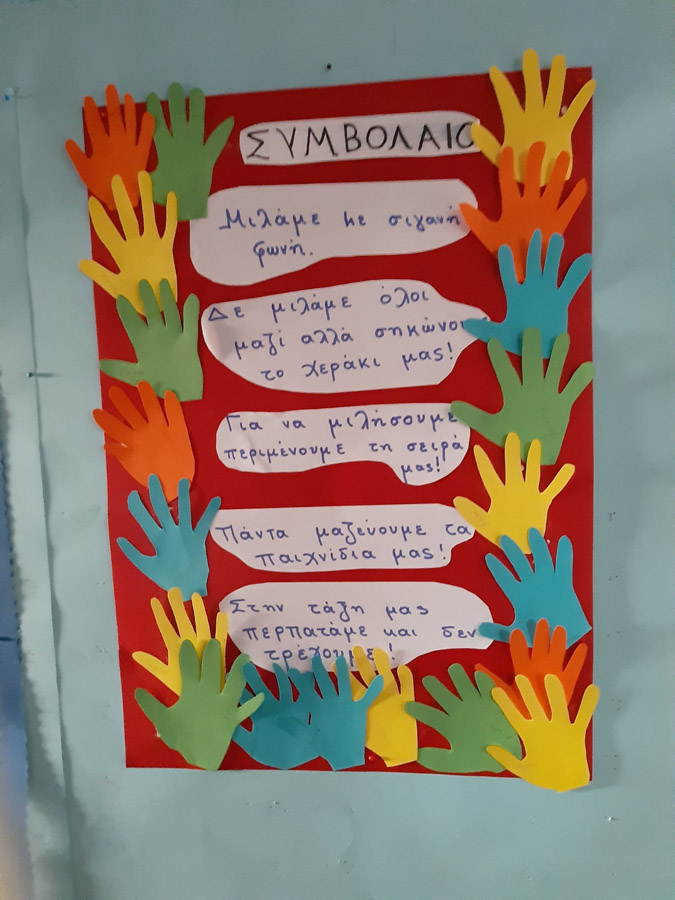 ΣΥΜΒΟΛΑΙΟ
Μιλάμε με σιγανή
φωνή.
Δε μιλάμε όλοι
μαζί αλλά σηκώνου
το χεράκι μας!
Για να μιλήσουμε
περιμένουμε τη σειρά
μας!
Πάντα μαζεύουμε τα
παιχνίδια μας!
Στην τάξη μας
περπατάμε και δεν
τρέχουμε!